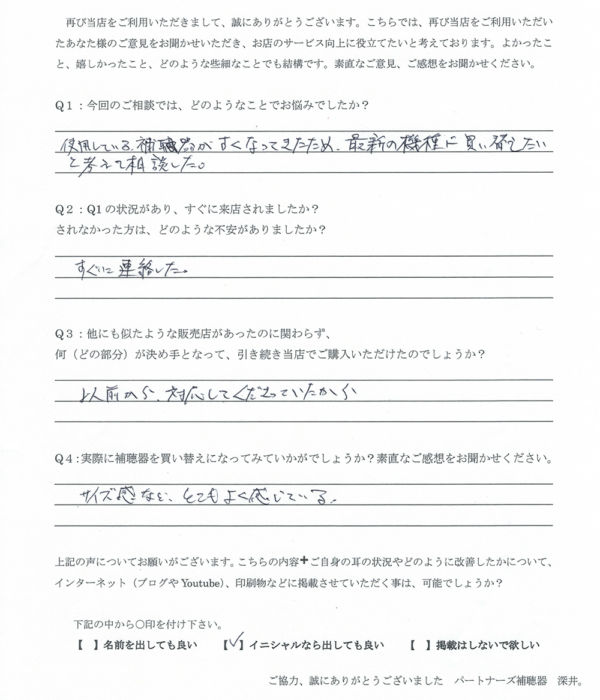 再び当店をご利用いただきまして、誠にありがとうございます。こちらでは、再び当店をご利用いただい
たあなた様のご意見をお聞かせいただき、お店のサービス向上に役立てたいと考えております。よかったこ
と、嬉しかったこと、どのような些細なことでも結構です。素直なご意見、ご感想をお聞かせください。
Q1：今回のご相談では、どのようなことでお悩みでしたか？
使用している補聴器がすくなってきたため、最新の機種に買い替えしたい
と考えて相談した。
Q2：Q1の状況があり、すぐに来店されましたか？
されなかった方は、どのような不安がありましたか？
すぐに連絡した。
Q3：他にも似たような販売店があったのに関わらず、
何（どの部分）が決め手となって、引き続き当店でご購入いただけたのでしょうか？
以前から、対応してくださっていたから
Q4：実際に補聴器を買い替えになってみていかがでしょうか？素直なご感想をお聞かせください。
サイズ感など、とてもよく感じている。
上記の声についてお願いがございます。こちらの内容＋ご自身の耳の状況やどのように改善したかについて、
インターネット（ブログやYoutube）、印刷物などに掲載させていただく事は、可能でしょうか？
下記の中から〇印を付け下さい。
【 】名前を出しても良い 【✓】イニシャルなら出しても良い 【 】掲載はしないで欲しい
ご協力、誠にありがとうございました パートナーズ補聴器 深井。